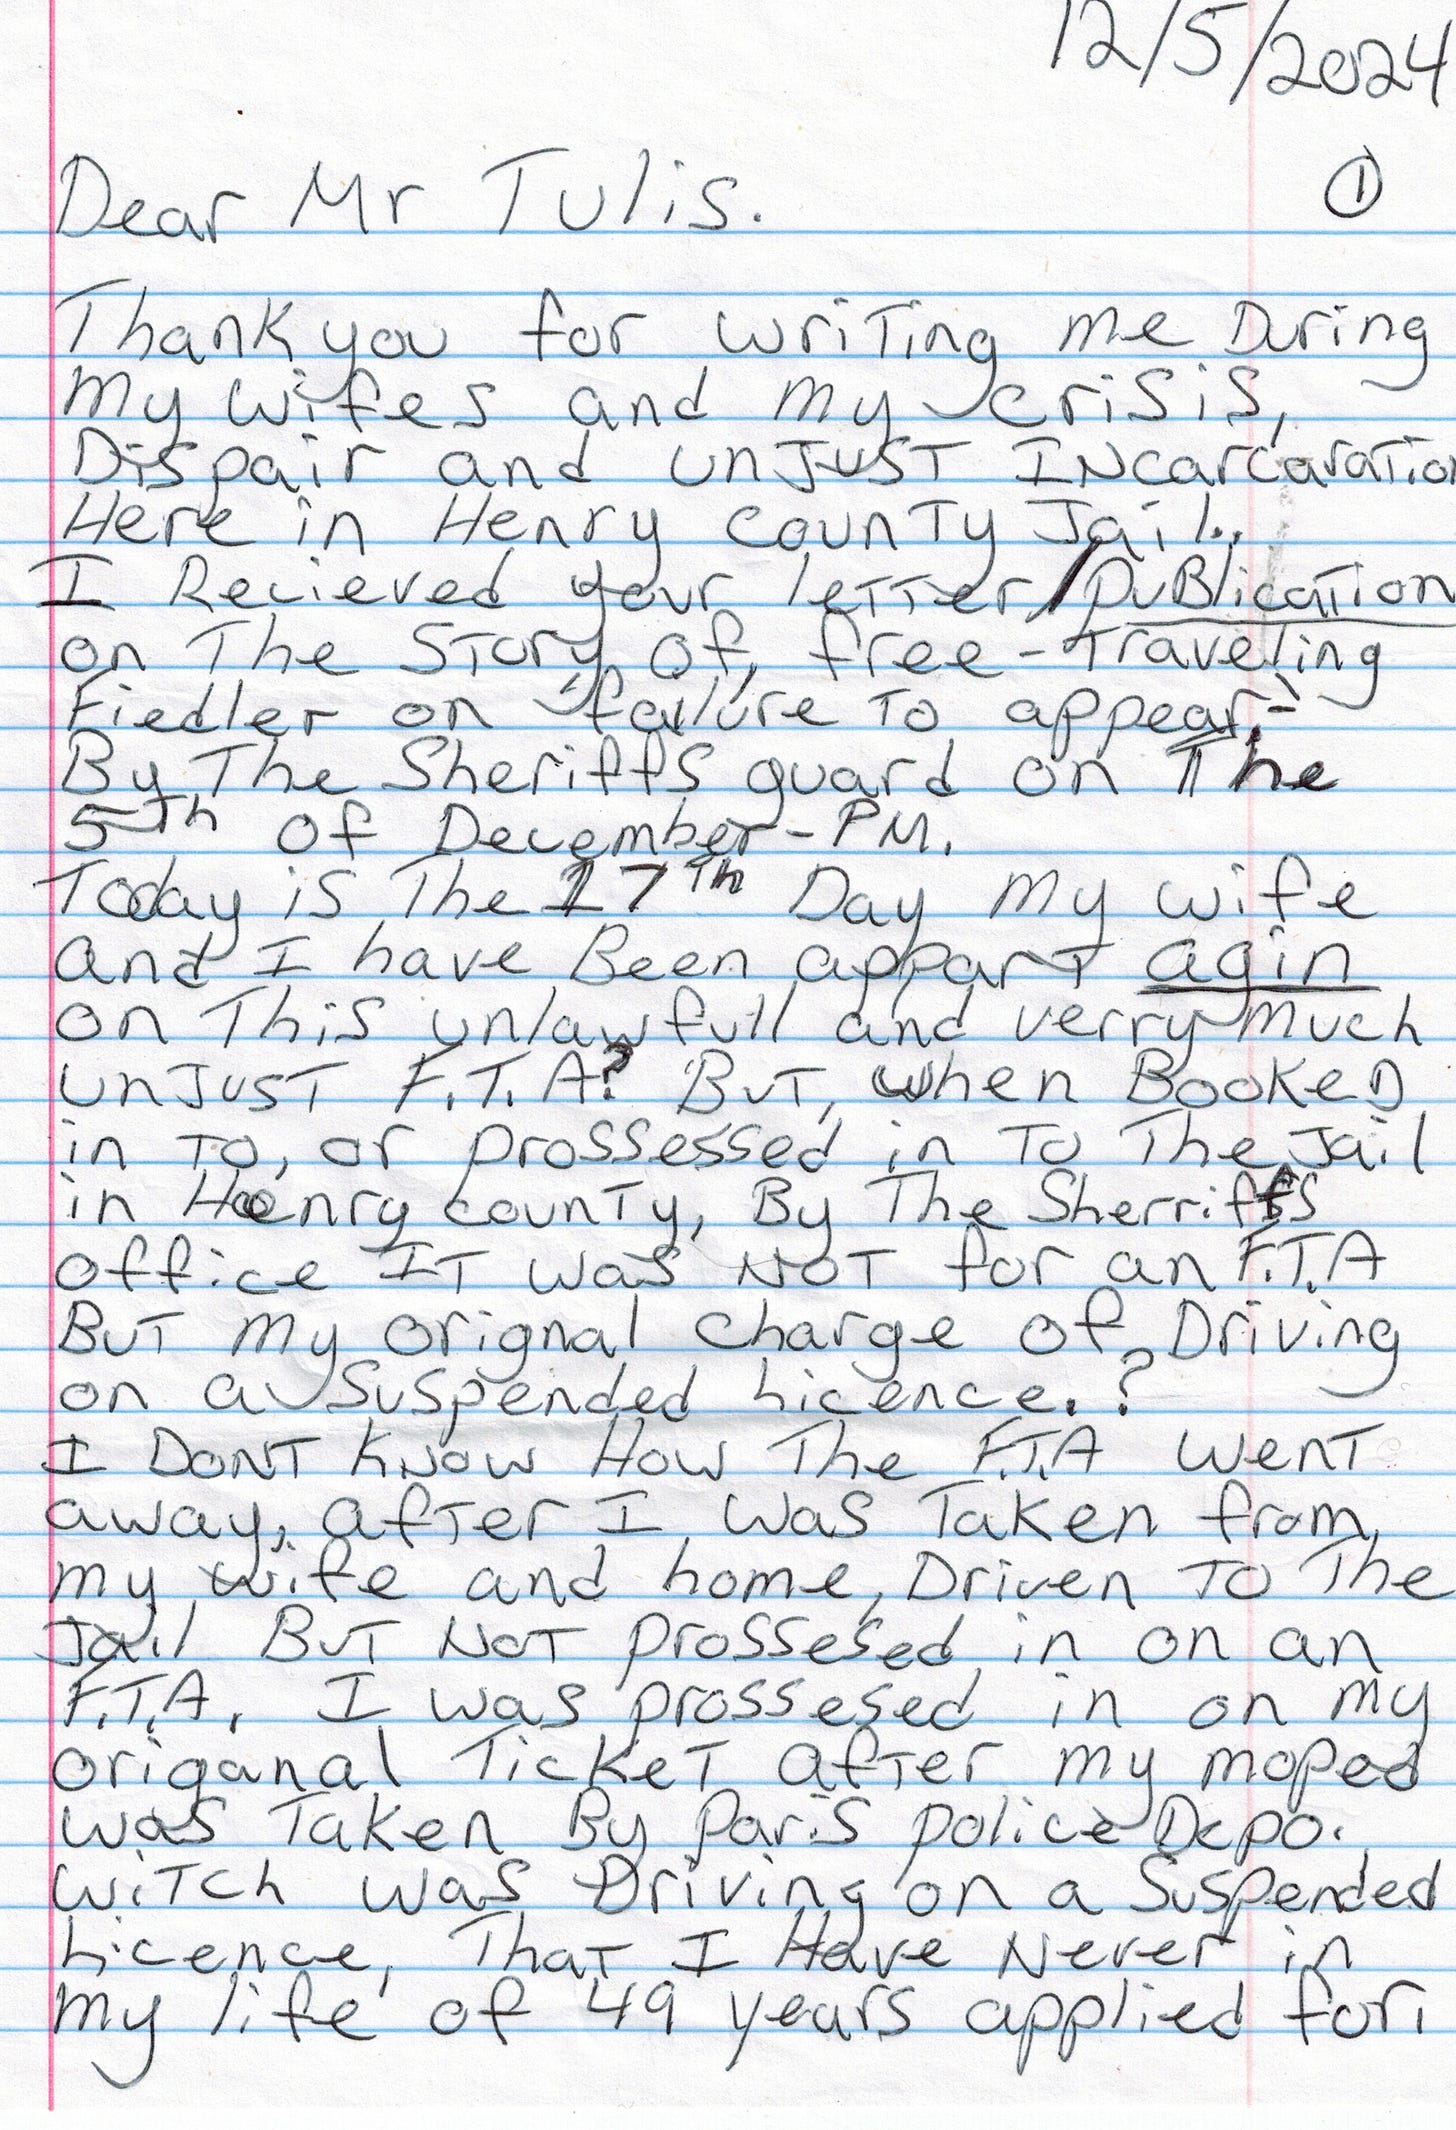 12/5/2024
①
Dear Mr Tulis.
Thank you for writing me During
my wifes and my crisis,
Dispair and unJust INcarcaration
Here in Henry county Jail..
I Recieved your letter/publication
on The Story of, free-Traveling
Fiedler on "failure to appear"
By The Sheriffs guard on The
5th of December-PM.
Today is The 17th Day my wife
and I have Been appart agin
on This unlawfull and verry much
unJust F.T.A? But, when BookeD
in to, or prossessed in To The Jail
in Henry county, By The Sherriffs
office IT was NOT for an F.T.A
But my orignal charge of Driving
on a Suspended Licence.?
I DONT KNow How The F.T.A went
away, after I was Taken from
my wife and home, Driven To The
Jail But NoT prossesed in on an
F.T.A. I was prossesed in on my
origanal TickeT after my moped
was Taken By Paris police Depo.
witch was Driving on a Suspended
Licence, That I Have Never in
my life of 49 years applied for.